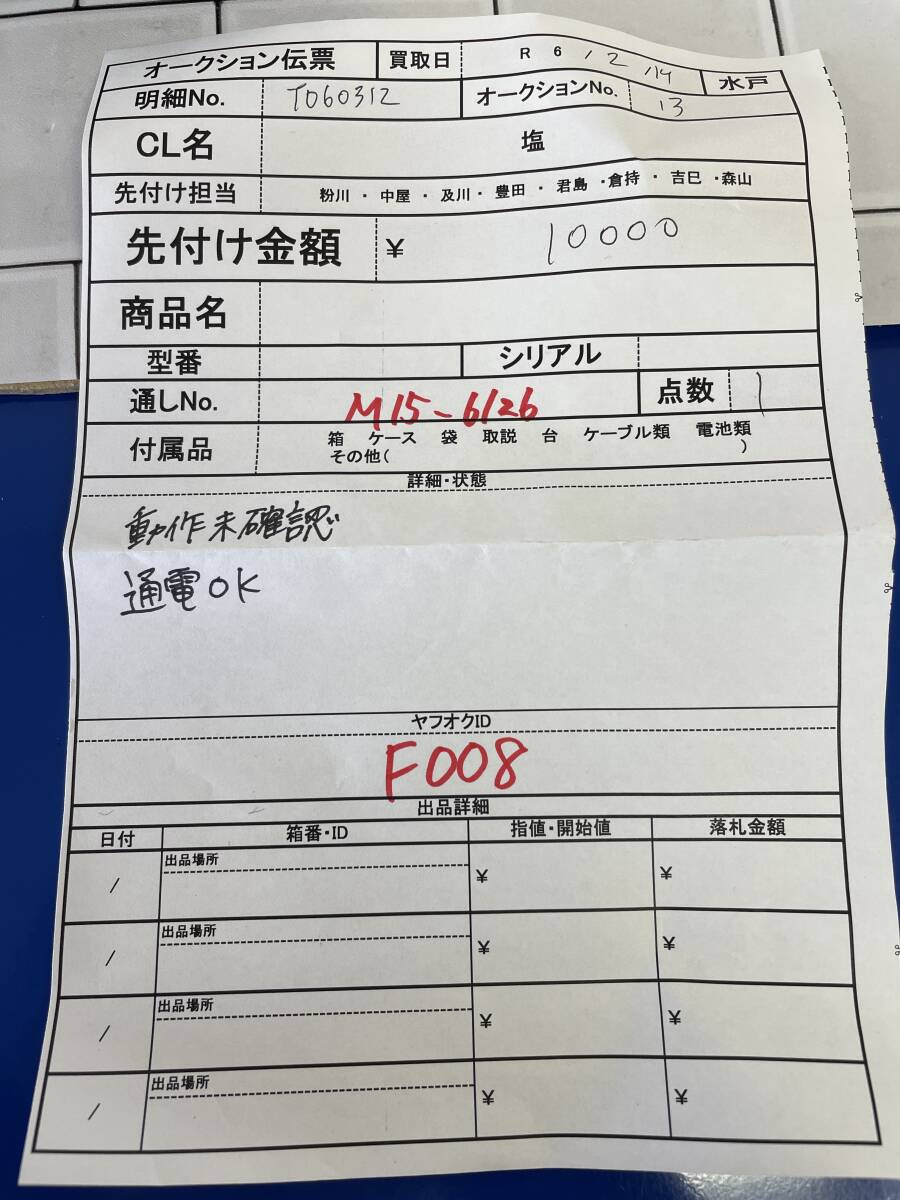 オークション伝票 買取日 R 6 / 2 / 14 水戸
明細No. T060312 オークションNo. 13
CL名 塩
先付け担当 粉川 ・ 中屋 ・ 及川 ・ 豊田 ・ 君島 ・倉持 ・ 吉巳 ・森山
先付け金額 ¥ 10000
商品名
型番 シリアル
通しNo. M15-6126 点数 1
付属品 箱 ケース 袋 取説 台 ケーブル類 電池類
その他( )
詳細・状態
動作未確認
通電OK
ヤフオクID
F008
出品詳細
日付 箱番・ID 指値・開始値 落札金額
/ 出品場所 ¥ ¥
/ 出品場所 ¥ ¥
/ 出品場所 ¥ ¥
/ 出品場所 ¥ ¥